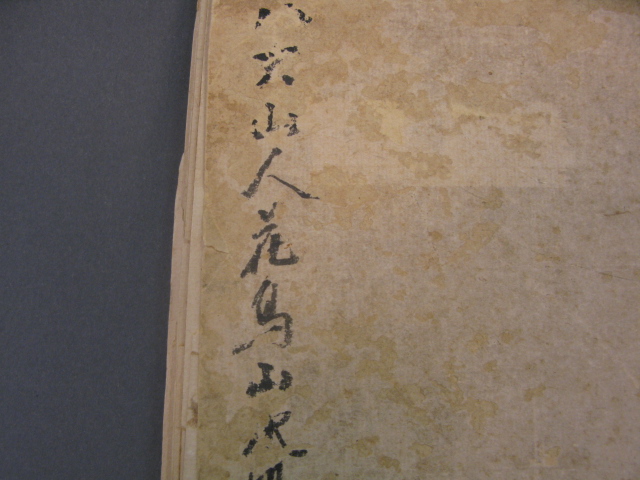 八大山人花鳥山水